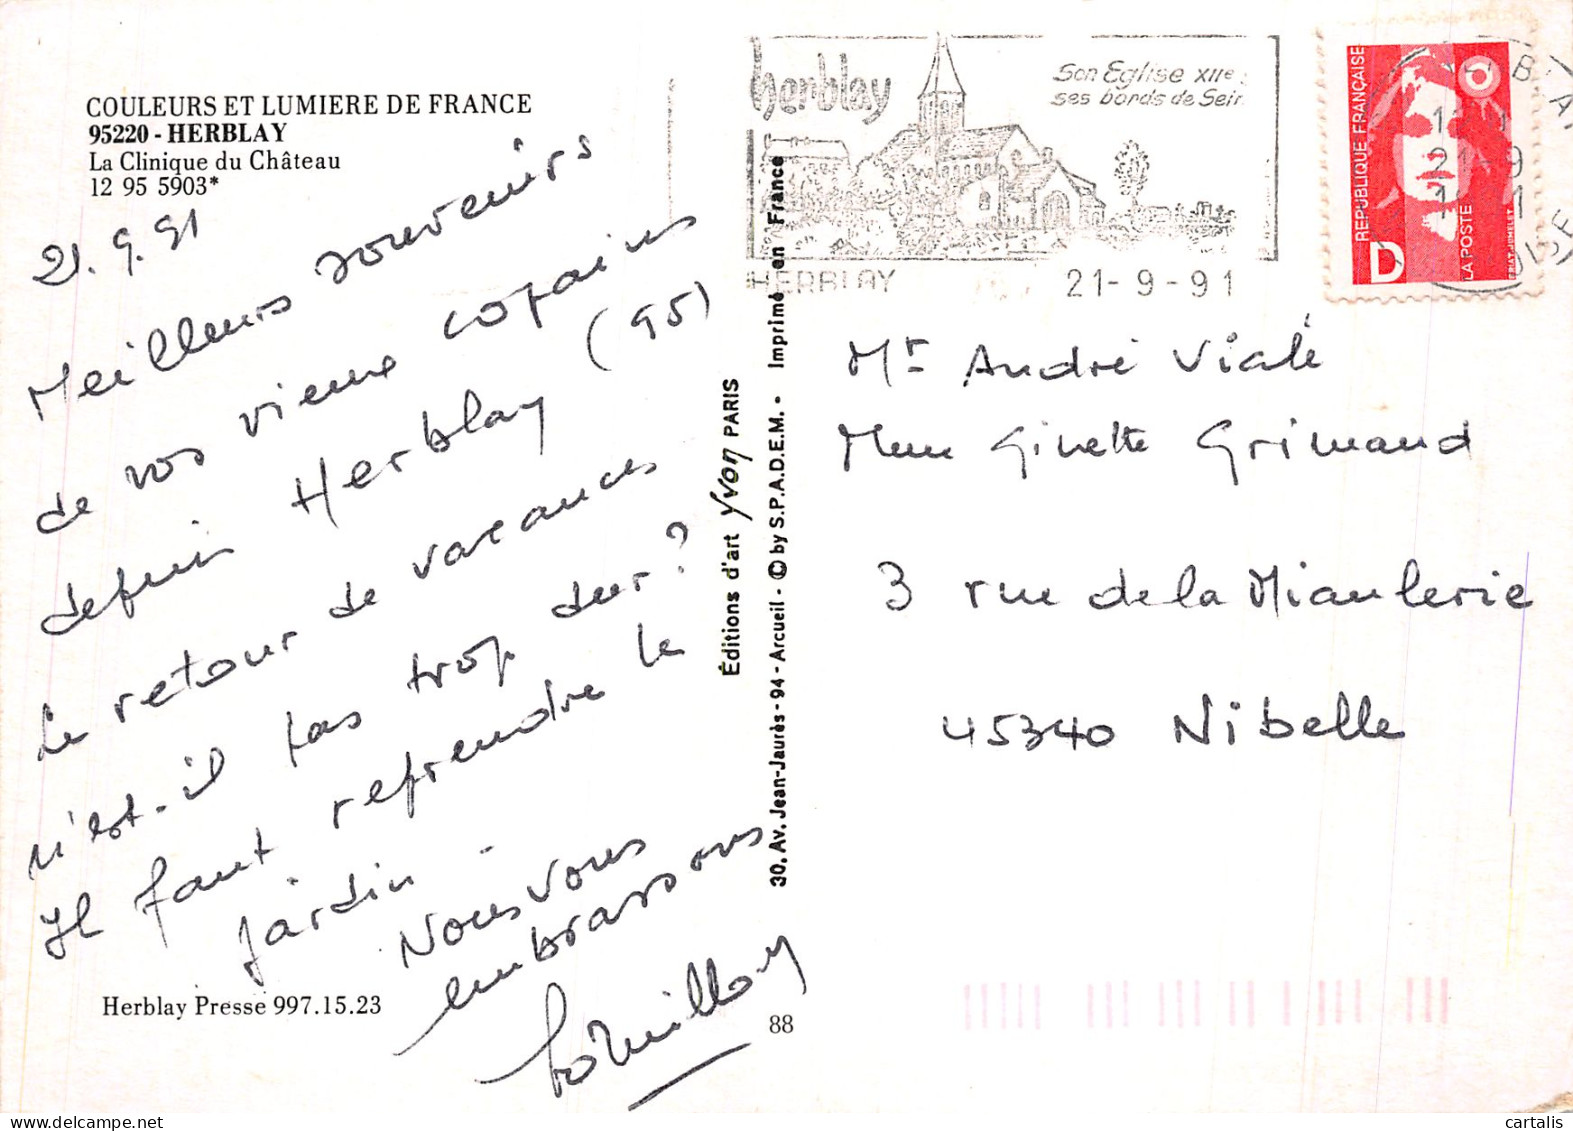 COULEURS ET LUMIERE DE FRANCE
95220 - HERBLAY
La Clinique du Château
12 95 5903*
21.9.91
Meilleurs souvenirs
de vos vieux copains
depuis Herblay (95)
Le retour de vacances
n'est-il pas trop dur ?
Il faut reprendre le
jardin -
Nous vous
embrassons
Herblay Presse 997.15.23
88
Éditions d'art Yvon PARIS
30. Av. Jean-Jaurès - 94 - Arcueil - © by S.P.A.D.E.M. - Imprimé en France
herblay
Son Eglise XIIe
ses bords de Sein
HERBLAY
21-9-91
REPUBLIQUE FRANÇAISE
LA POSTE
D
Mr André Vialé
Mme Ginette Grimaud
3 rue de la Miaulerie
45340 Nibelle
cartalis